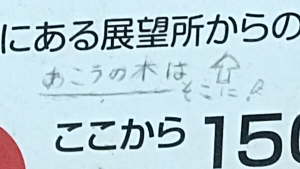 にある展望所からの
あこうの木は
そこに
ここから 150